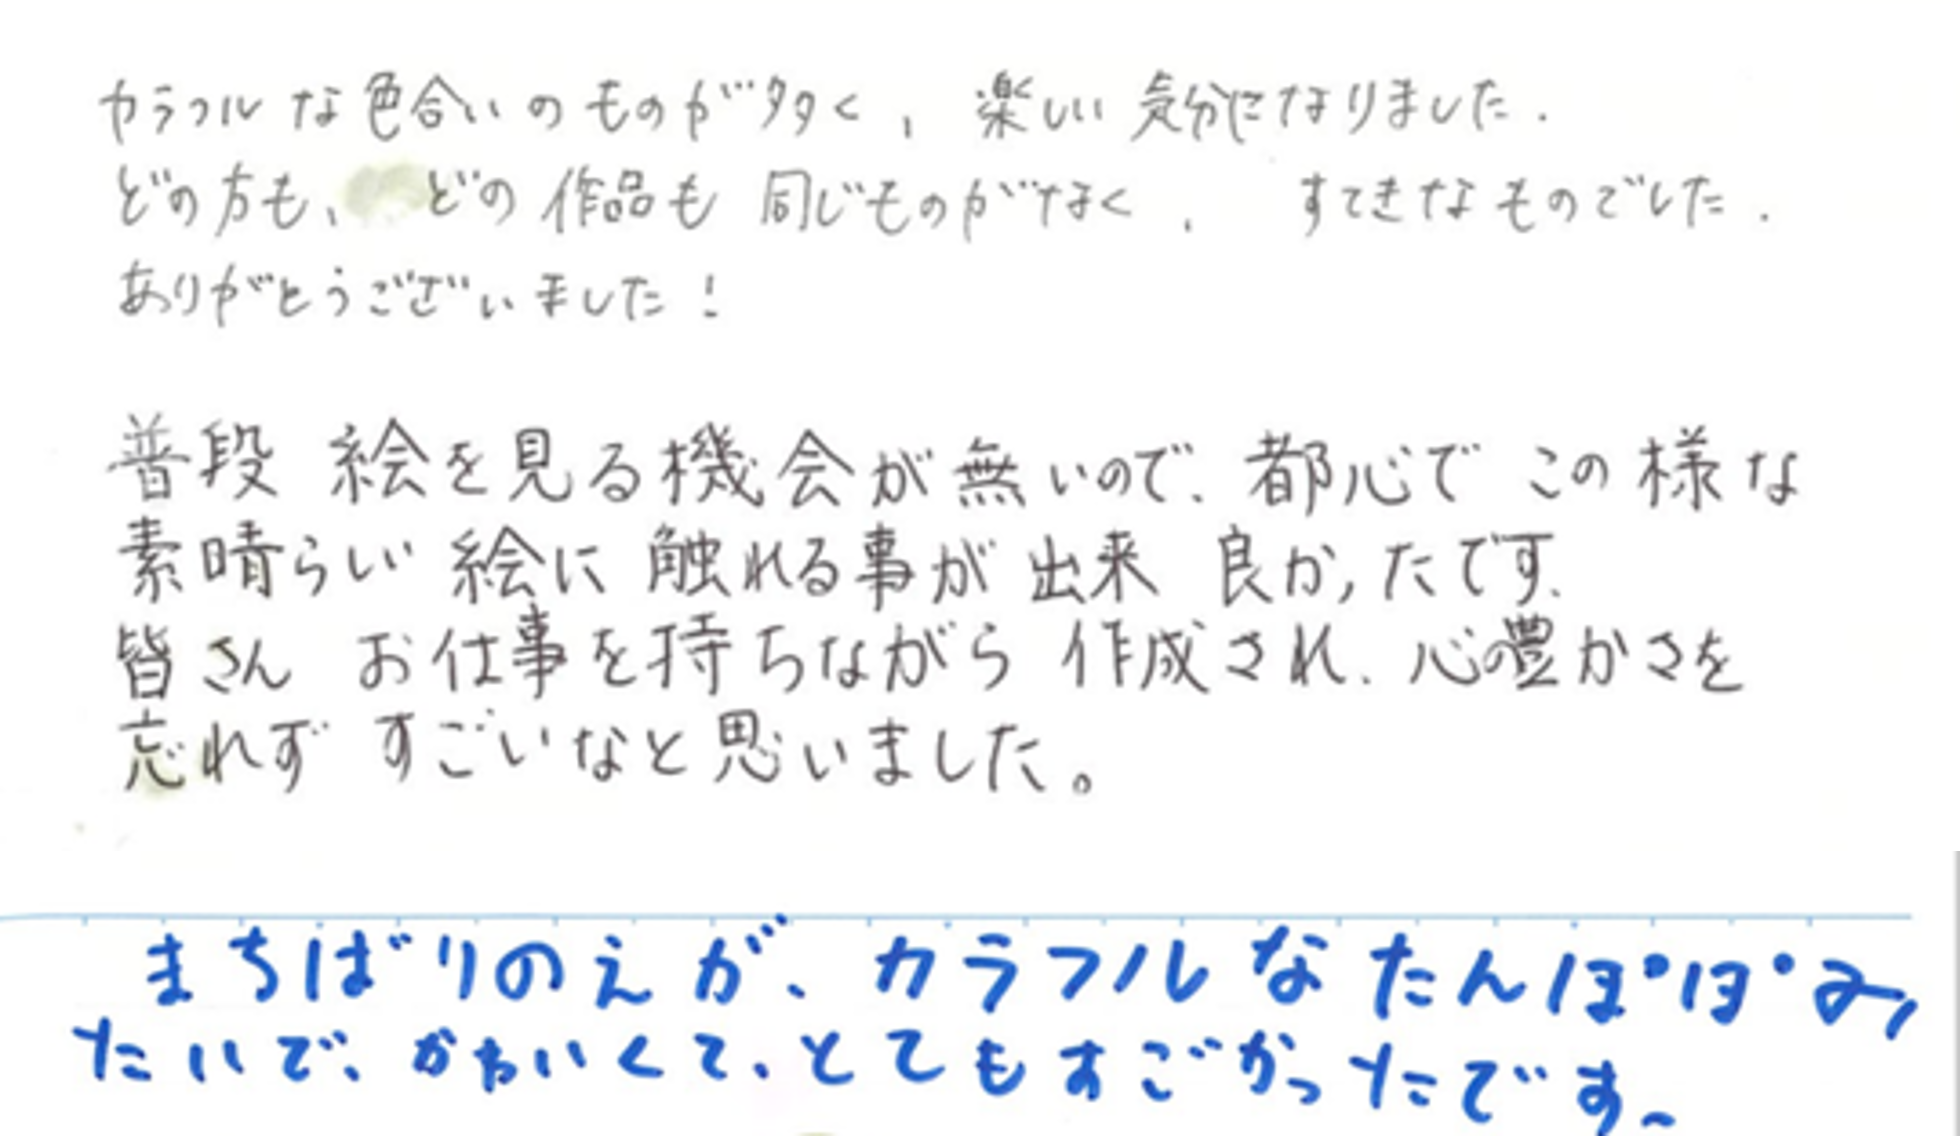 カラフルな色合いのものが多く、楽しい気分になりました.
どの方も、どの作品も同じものがなく、すてきなものでした.
ありがとうございました!
普段 絵を見る機会が無いので、都心で この様な
素晴らしい 絵に 触れる事が 出来 良かったです.
皆さん お仕事を持ちながら 作成され、心豊かさを
忘れず すごいなと思いました。
まちばりのえが、カラフルなたんぽぽみ
たいで、かわいくて、とてもすごかったです~